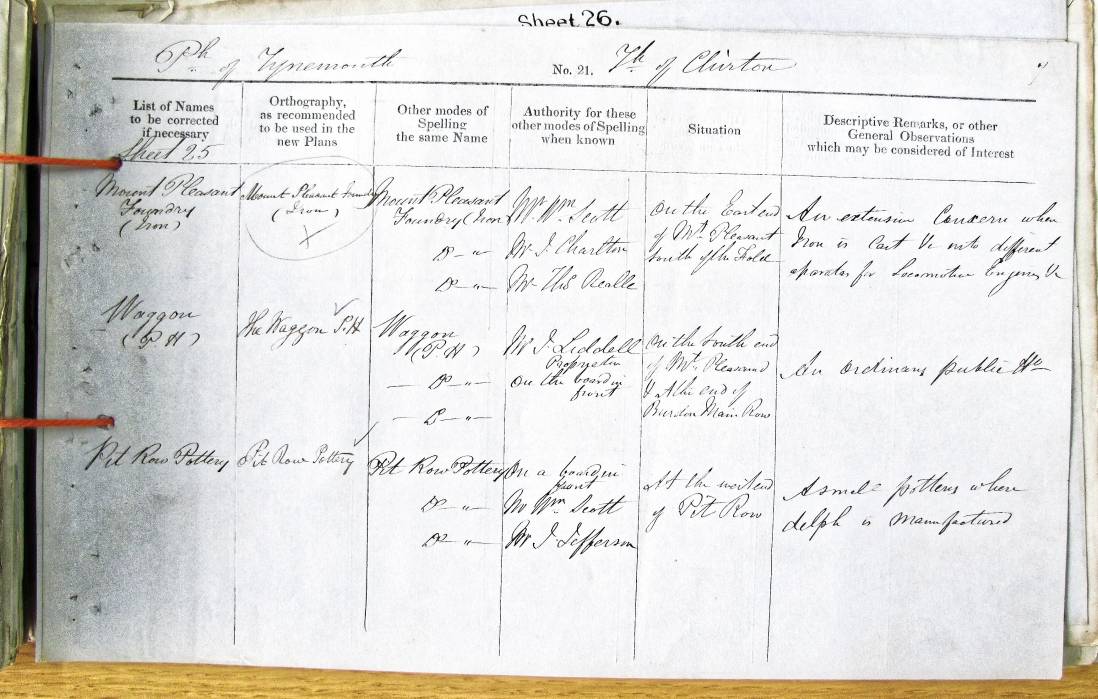 Sheet 26.
Ph of Tynemouth No. 21. Th of Chirton 7
List of Names to be corrected if necessary
Orthography, as recommended to be used in the new Plans
Other modes of Spelling the same Name
Authority for these other modes of Spelling when known
Situation
Descriptive Remarks, or other General Observations which may be considered of Interest
Sheet 25
Mount Pleasant
Foundry
(Iron)
Mount Pleasant Foundry
(Iron)
Mount Pleasant
Foundry (Iron)
Do "
Do "
Mr Wm Scott
Mr J. Charlton
Mr Ths Realle
On the East end
of Mt Pleasant
South of the Fold
An extensive Concern where
Iron is Cast &c into different
aparatus for Locomotive Engines &c
Waggon
(P H)
The Waggon P.H
Waggon
(P H)
— Do "—
— Do "—
Mr J. Liddell
Proprietor
On the board in
front
On the South end
of Mt Pleasant
& at the end of
Burdon Main Row
An ordinary public Ho
Pit Row Pottery
Pit Row Pottery
Pit Row Pottery
Do "
Do "
On a board in
front
Mr Wm Scott
Mr J. Jefferson
At the west end
of Pit Row
A small pottery where
delph is manufactured